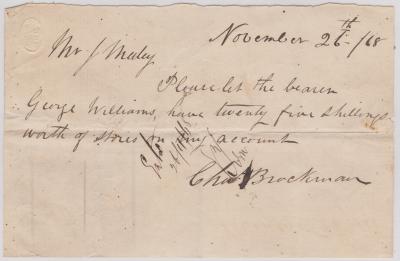 November 26th /68
Mr J Mealey
Please let the bearer
George Williams, have twenty five Shillings
worth of stores on my account
Chas Brockman